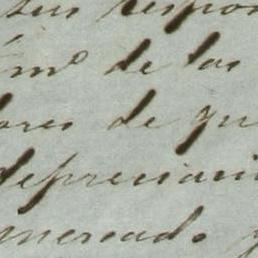 sus respon
imº de las
ores de qu
depreciaci
mercado y